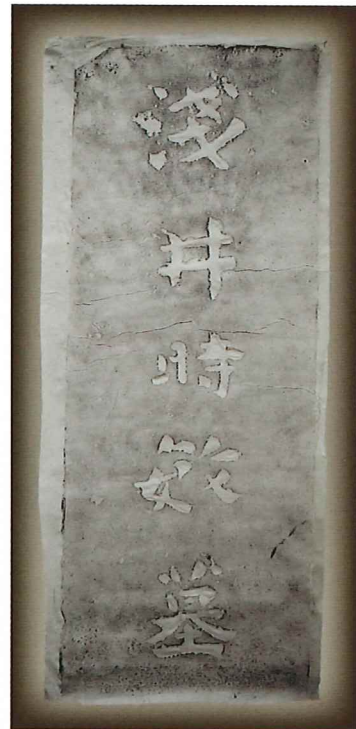 淺井時墓